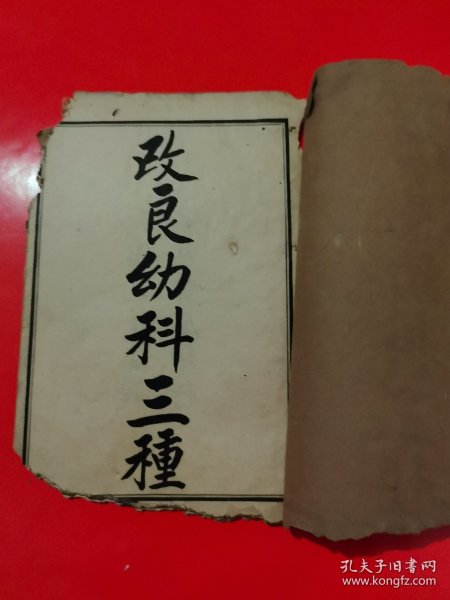 改良幼科三種
孔夫子旧书网
www.kongfz.com